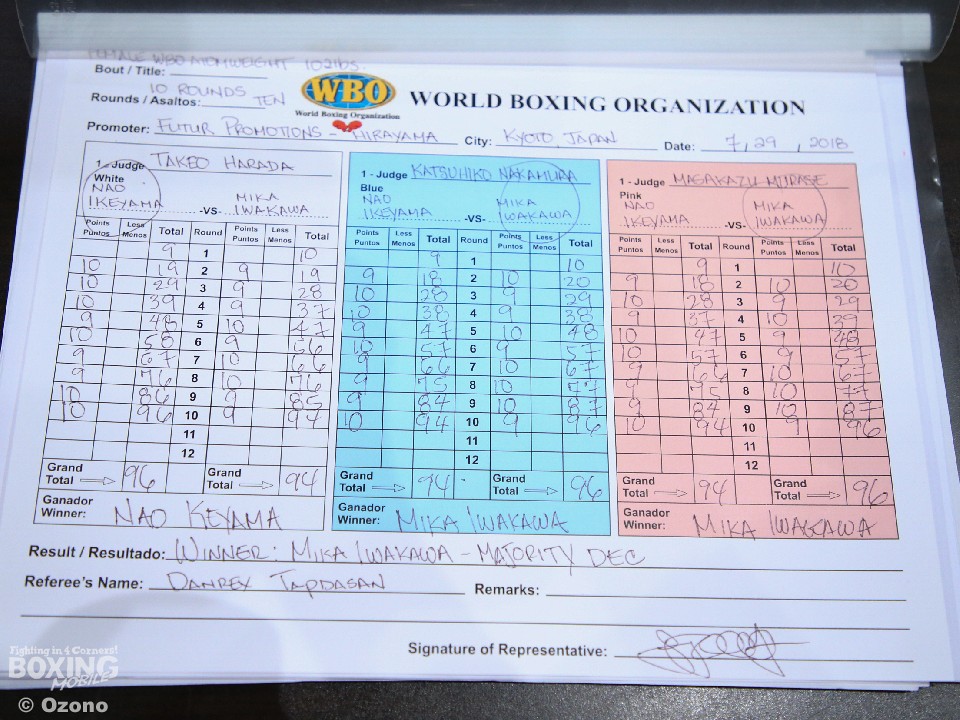 FEMALE WBO ATOMWEIGHT 102lbs.
Bout / Title:
10 ROUNDS
Rounds / Asaltos: TEN
WBO
World Boxing Organization
WORLD BOXING ORGANIZATION
Promoter: FUTUR PROMOTIONS - HIRAYAMA City: KYOTO JAPAN Date: 7, 29, 2018
1 - Judge TAKEO HARADA
White
NAO IKEYAMA -VS- MIKA IWAKAWA
Points Puntos Less Menos Total Round Points Puntos Less Menos Total
9 1 10
10 19 2 9 19
10 29 3 9 28
10 39 4 9 37
9 48 5 10 47
10 58 6 9 56
9 67 7 10 66
9 76 8 10 76
10 86 9 9 85
10 96 10 9 94
11
12
Grand Total 96 Grand Total 94
Ganador
Winner: NAO KEYAMA
1 - Judge KATSUHIKO NAKAMURA
Blue
NAO IKEYAMA -VS- MIKA IWAKAWA
Points Puntos Less Menos Total Round Points Puntos Less Menos Total
9 1 10
9 18 2 10 20
10 28 3 9 29
10 38 4 9 38
9 47 5 10 48
10 57 6 9 57
9 66 7 10 67
9 75 8 10 77
9 84 9 10 87
10 94 10 9 96
11
12
Grand Total 94 Grand Total 96
Ganador
Winner: MIKA IWAKAWA
1 - Judge MASAKAZU
Pink
NAO IKEYAMA -VS- MIKA IWAKAWA
Points Puntos Less Menos Total Round Points Puntos Less Menos Total
9 1 10
9 18 2 10 20
10 28 3 9 29
9 37 4 10 39
10 47 5 9 48
10 57 6 9 57
9 66 7 10 67
9 75 8 10 77
9 84 9 10 87
10 94 10 9 96
11
12
Grand Total 94 Grand Total 96
Ganador
Winner: MIKA IWAKAWA
Result / Resultado: WINNER: MIKA IWAKAWA - MAJORITY DEC
Referee's Name: DANREX TAPDASAN Remarks:
Signature of Representative:
Fighting in 4 Corners!
BOXING
MOBILE
© Ozono